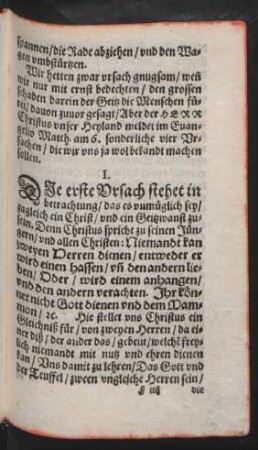 spannen/die Rade abziehen/vnd den Wa-
gen vmbstürtzen.
Wir hetten zwar vrsach gnugsam/weñ
wir nur mit ernst bedechten/den grossen
schaden darein der Geitz die Menschen fü-
ret/dauon zuuor gesagt/Aber der HERR
Christus vnser Heyland meldet im Euan-
gelio Matth. am 6. sonderliche vier Vr-
sachen/die wir vns ja wol bekandt machen
sollen.
I.
DIe erste Vrsach stehet in
betrachtung/das es vnmüglich sey/
zugleich ein Christ/vnd ein Geitzwanst zu-
sein. Denn Christus spricht zu seinen Jün-
gern/vnd allen Christen: Niemandt kan
zweyen Herren dienen/entweder er
wird einen hassen/vñ den andern lie-
ben/Oder/wird einem anhangen/
vnd den andern verachten. Ihr kön-
net nicht Gott dienen vnd dem Mam-
mon/ꝛc. Hie stellet vns Christus ein
Gleichniß für/von zweyen Herren/da ei-
ner diß/der ander das/gebeut/welchẽ frey-
lich niemandt mit nutz vnd ehren dienen
kan/Vns damit zu lehren/Das Gott vnd
der Teuffel/zween vngleiche Herren sein/
die